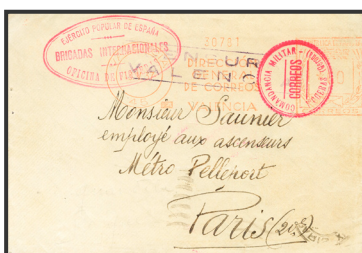 EJERCITO POPULAR DE ESPAÑA
BRIGADAS INTERNACIONALES
OFICINA DE
30781
DIRECC
GENERAL
DE CORREOS
VALENCIA
COMANDANCIA MILITAR
CORREOS
Monsieur Saunier
employé aux ascenseurs
Métro Pelleport
Paris (20e)